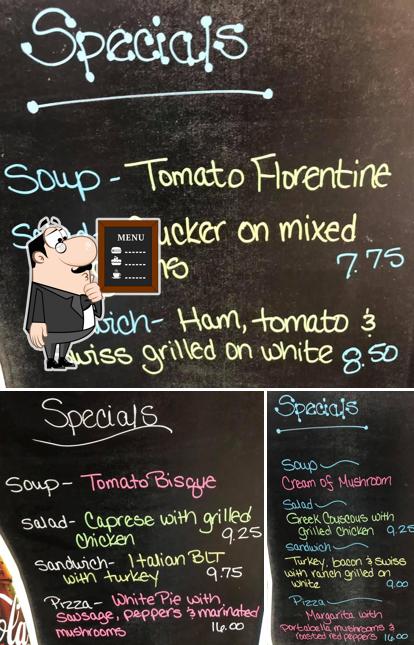 Specials
Soup - Tomato Florentine
on mixed
7.75
MENU
Ham, tomato &
grilled on white 8.50
Specials
Soup - Tomato Bisque
Salad - Caprese with grilled
chicken 9.25
Sandwich - Italian BLT
with turkey 9.75
Pizza - White Pie with
sausage, peppers & marinated
mushrooms 16.00
Specials
Soup
Cream of Mushroom
Salad
Greek Couscous with
grilled chicken 9.25
Sandwich
Turkey, bacon & swiss
with ranch grilled on
white 9.00
Pizza
Margarita with
portabella mushrooms &
roasted red peppers 16.00